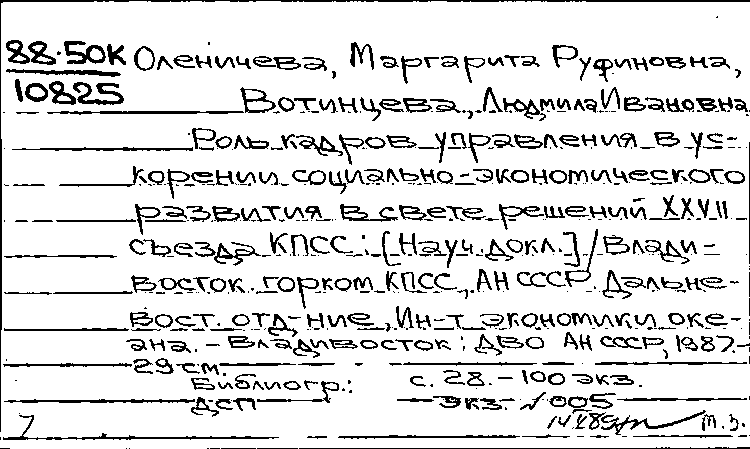 88-50К Оленичева, Маргарита Руфиновна,
10825 Вотинцева, Людмила Ивановна
Роль кадров управления в ус-
корении социально-экономического
развития в свете решений XXVII
съезда КПСС: [Науч. докл.] / Влади-
восток. горком КПСС, АН СССР. Дальне-
вост. отд-ние, Ин-т экономики оке-
ана. - Владивосток: ДВО АН СССР, 1987.-
29 см.
Библиогр.: с. 28. - 100 экз.
ДСП экз. №005
7 м.з.